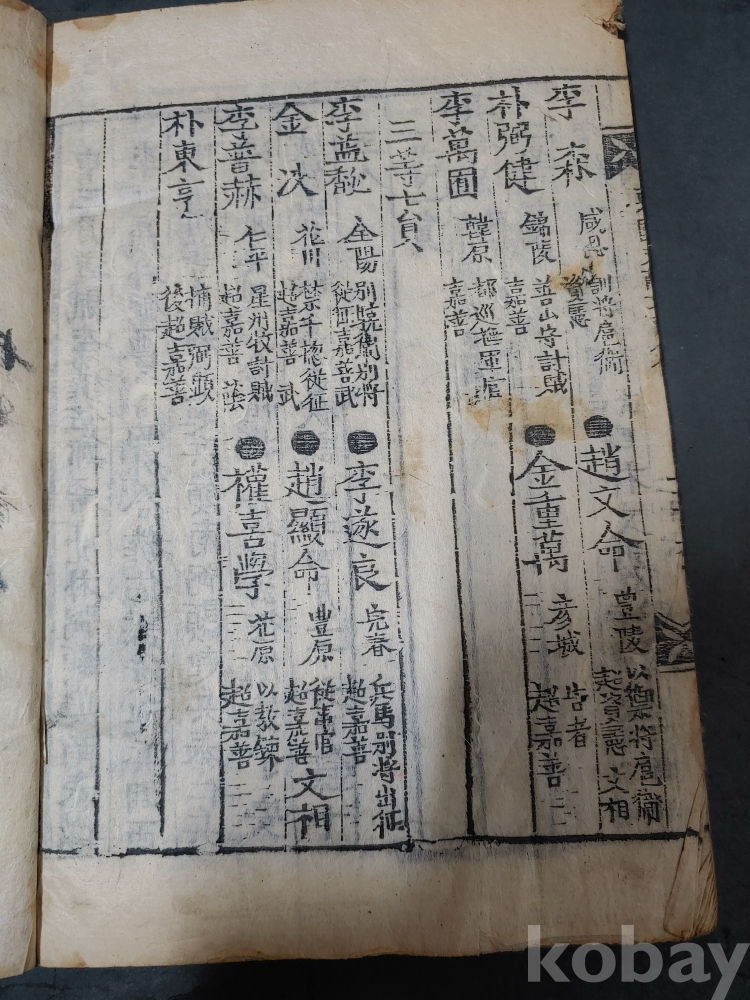 李森 咸恩 訓將扈衛 資憲 ●趙文命 豊陵 以禦將扈衛 超資憲 文相
朴弼健 錦陵 善山守討賊 嘉善 ●金重萬 彦城 告者 超嘉善
李萬囿 韓原 都巡撫軍官 嘉善
三等七員
李益馝 全陽 別驍衛別將 從征嘉善 武 ●李遂良 完春 兵馬別將出征 超嘉善
金浹 花川 禁千摠從征 超嘉善 武 ●趙顯命 豊原 從事官 超嘉善 文相
李普赫 仁平 星州牧討賊 超嘉善 蔭 ●權喜學 花原 以教鍊 超嘉善
朴東亨 捕賊 後超嘉善
kobay